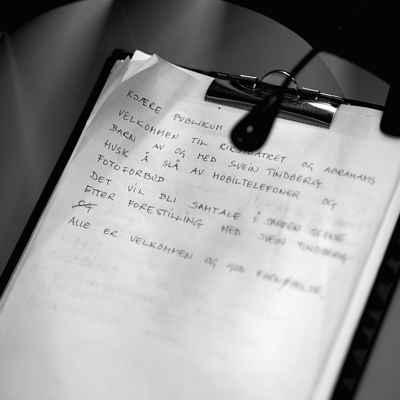 KJÆRE PUBLIKUM
VELKOMMEN TIL OG ABRAHAMS
BARN AV OG MED SVEIN TINDBERG
HUSK Å SLÅ AV MOBILTELEFONER OG
FOTOFORBUD
DET VIL BLI SAMTALE Å SCENE
ETTER FORESTILLING MED SVEIN TINDBERG
OG
ALLE ER VELKOMMEN OG GOD FORNØYELSE.